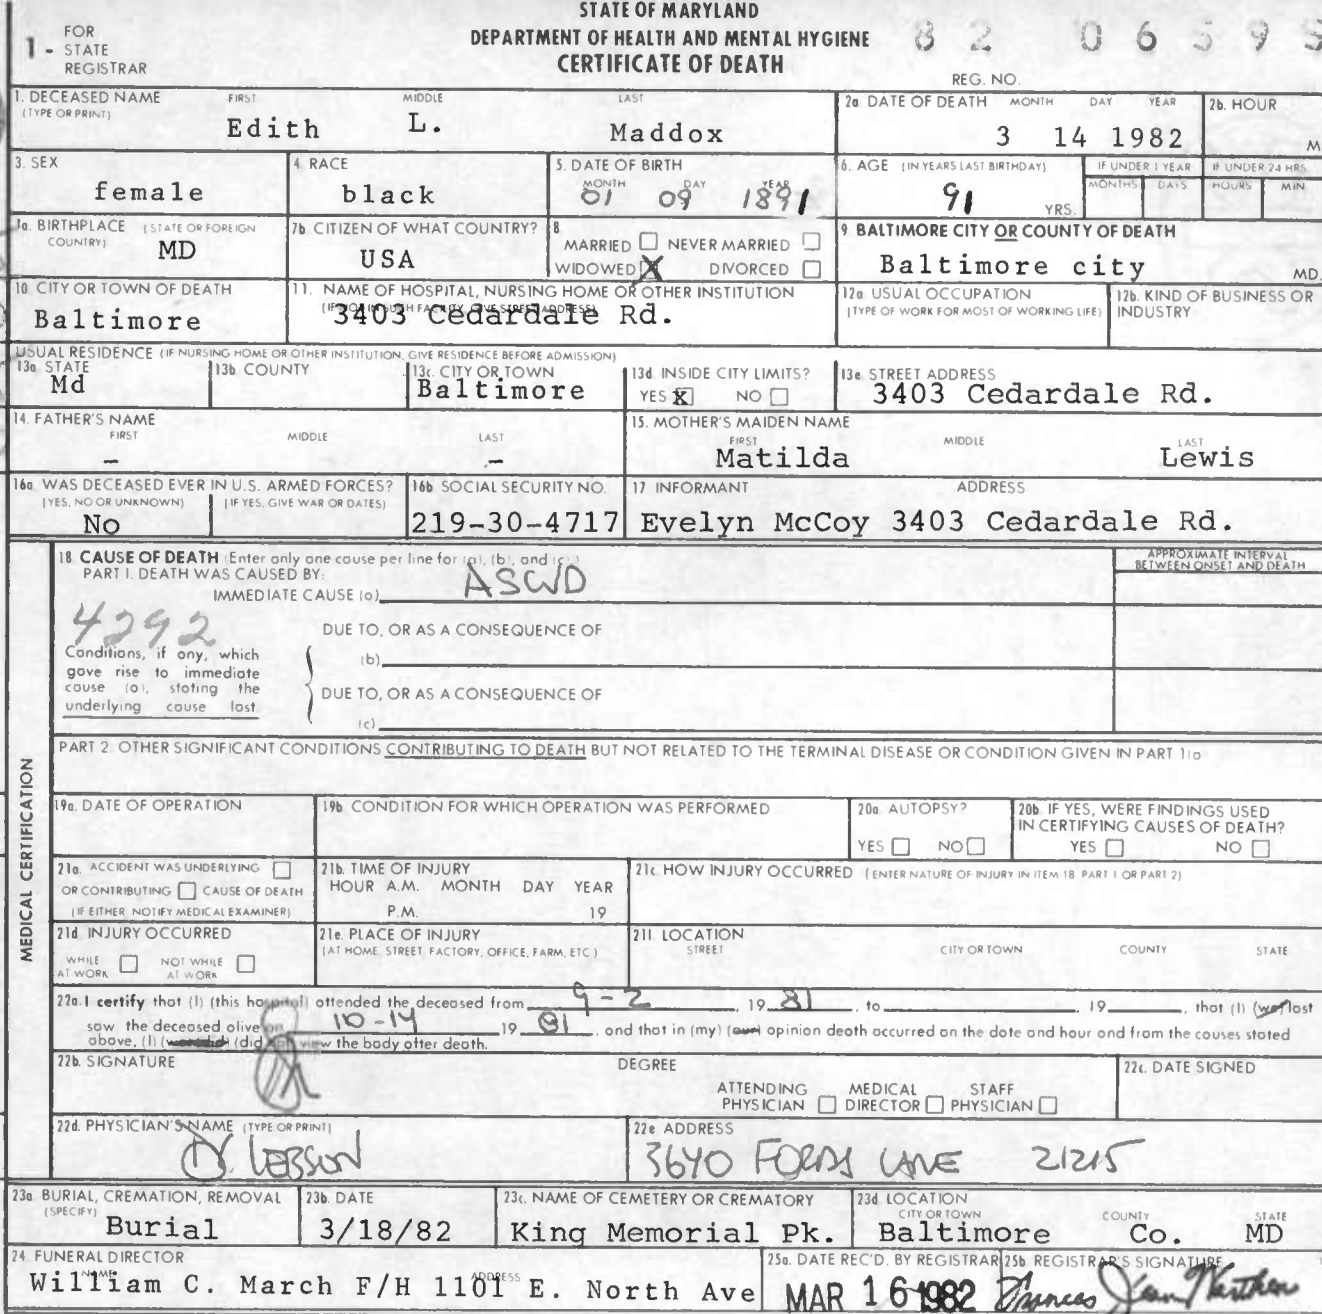 STATE OF MARYLAND
DEPARTMENT OF HEALTH AND MENTAL HYGIENE
CERTIFICATE OF DEATH
1 - FOR STATE REGISTRAR
82 06599
REG. NO.
1. DECEASED NAME (TYPE OR PRINT) FIRST MIDDLE LAST
Edith L. Maddox
2a. DATE OF DEATH MONTH DAY YEAR
3 14 1982
2b. HOUR
M
3. SEX
female
4. RACE
black
5. DATE OF BIRTH
MONTH DAY YEAR
01 09 1891
6. AGE (IN YEARS LAST BIRTHDAY)
91 YRS.
IF UNDER 1 YEAR
MONTHS DAYS
IF UNDER 24 HRS
HOURS MIN
7a. BIRTHPLACE (STATE OR FOREIGN COUNTRY)
MD
7b. CITIZEN OF WHAT COUNTRY?
USA
8.
MARRIED NEVER MARRIED
WIDOWED X DIVORCED
9. BALTIMORE CITY OR COUNTY OF DEATH
Baltimore city MD.
10. CITY OR TOWN OF DEATH
Baltimore
11. NAME OF HOSPITAL, NURSING HOME OR OTHER INSTITUTION
3403 Cedardale Rd.
12a. USUAL OCCUPATION
(TYPE OF WORK FOR MOST OF WORKING LIFE)
12b. KIND OF BUSINESS OR INDUSTRY
USUAL RESIDENCE (IF NURSING HOME OR OTHER INSTITUTION, GIVE RESIDENCE BEFORE ADMISSION)
13a. STATE
Md
13b. COUNTY
13c. CITY OR TOWN
Baltimore
13d. INSIDE CITY LIMITS?
YES X NO
13e. STREET ADDRESS
3403 Cedardale Rd.
14. FATHER'S NAME
FIRST MIDDLE LAST
– –
15. MOTHER'S MAIDEN NAME
FIRST MIDDLE LAST
Matilda Lewis
16a. WAS DECEASED EVER IN U.S. ARMED FORCES?
(YES, NO OR UNKNOWN) (IF YES, GIVE WAR OR DATES)
No
16b. SOCIAL SECURITY NO.
219-30-4717
17. INFORMANT ADDRESS
Evelyn McCoy 3403 Cedardale Rd.
MEDICAL CERTIFICATION
18. CAUSE OF DEATH (Enter only one cause per line for (a), (b), and (c).)
PART I. DEATH WAS CAUSED BY:
IMMEDIATE CAUSE (a) ASCVD
APPROXIMATE INTERVAL BETWEEN ONSET AND DEATH
4292
Conditions, if any, which
gave rise to immediate
cause (a), stating the
underlying cause last
DUE TO, OR AS A CONSEQUENCE OF
(b)
DUE TO, OR AS A CONSEQUENCE OF
(c)
PART 2. OTHER SIGNIFICANT CONDITIONS CONTRIBUTING TO DEATH BUT NOT RELATED TO THE TERMINAL DISEASE OR CONDITION GIVEN IN PART 1(a)
19a. DATE OF OPERATION
19b. CONDITION FOR WHICH OPERATION WAS PERFORMED
20a. AUTOPSY?
YES NO
20b. IF YES, WERE FINDINGS USED IN CERTIFYING CAUSES OF DEATH?
YES NO
21a. ACCIDENT WAS UNDERLYING
OR CONTRIBUTING CAUSE OF DEATH
(IF EITHER, NOTIFY MEDICAL EXAMINER)
21b. TIME OF INJURY
HOUR A.M. MONTH DAY YEAR
P.M. 19
21c. HOW INJURY OCCURRED (ENTER NATURE OF INJURY IN ITEM 18 PART 1 OR PART 2)
21d. INJURY OCCURRED
WHILE AT WORK NOT WHILE AT WORK
21e. PLACE OF INJURY
(AT HOME, STREET, FACTORY, OFFICE, FARM, ETC.)
21f. LOCATION
STREET CITY OR TOWN COUNTY STATE
22a. I certify that (I) (this hospital) attended the deceased from 9-2 19 81, to 19, that (I) (we) last
saw the deceased alive on 10-14 19 81, and that in (my) (our) opinion death occurred on the date and hour and from the causes stated
above, (I) (did view the body after death.
22b. SIGNATURE
DEGREE
ATTENDING PHYSICIAN MEDICAL DIRECTOR STAFF PHYSICIAN
22c. DATE SIGNED
22d. PHYSICIAN'S NAME (TYPE OR PRINT)
LEBSON
22e. ADDRESS
3640 FORDS LANE 21215
23a. BURIAL, CREMATION, REMOVAL (SPECIFY)
Burial
23b. DATE
3/18/82
23c. NAME OF CEMETERY OR CREMATORY
King Memorial Pk.
23d. LOCATION
CITY OR TOWN COUNTY STATE
Baltimore Co. MD
24. FUNERAL DIRECTOR
NAME ADDRESS
William C. March F/H 1101 E. North Ave
25a. DATE REC'D. BY REGISTRAR
MAR 16 1982
25b. REGISTRAR'S SIGNATURE
Frances Jean